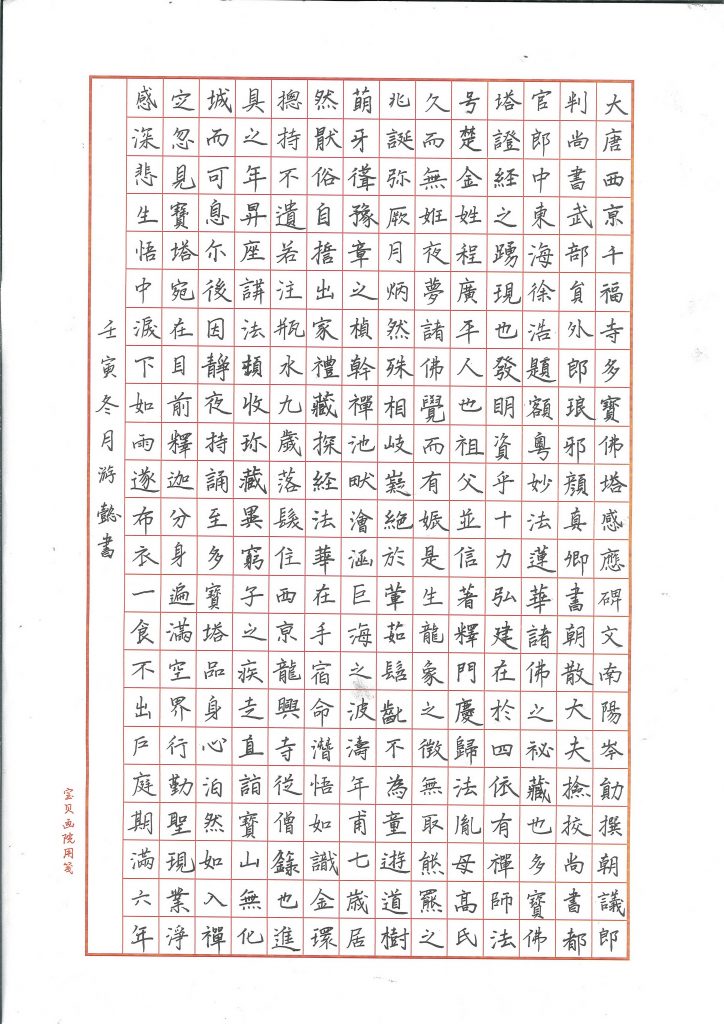 大唐西京千福寺多寶佛塔感應碑文南陽岑勛撰朝議郎
判尚書武部員外郎琅邪顏真卿書朝散大夫撿挍尚書都
官郎中東海徐浩題額粵妙法蓮華諸佛之祕藏也多寶佛
塔證經之踴現也發明資乎十力弘建在於四依有禪師法
号楚金姓程廣平人也祖父並信著釋門慶歸法胤母高氏
久而無姙夜夢諸佛覺而有娠是生龍象之徵無取熊羆之
兆誕弥厥月炳然殊相岐嶷絕於葷茹髫齔不為童遊道樹
萌牙聳豫章之楨幹禪池畎澮涵巨海之波濤年甫七歲居
然猒俗自誓出家禮藏探經法華在手宿命潛悟如識金環
摠持不遺若注瓶水九歲落髮住西京龍興寺從僧籙也進
具之年昇座講法頓收珎藏異窮子之疾走直詣寶山無化
城而可息尒後因靜夜持誦至多寶塔品身心泊然如入禪
定忽見寶塔宛在目前釋迦分身遍滿空界行勤聖現業淨
感深悲生悟中淚下如雨遂布衣一食不出戶庭期滿六年
壬寅冬月游懿書
宝贝画院用笺